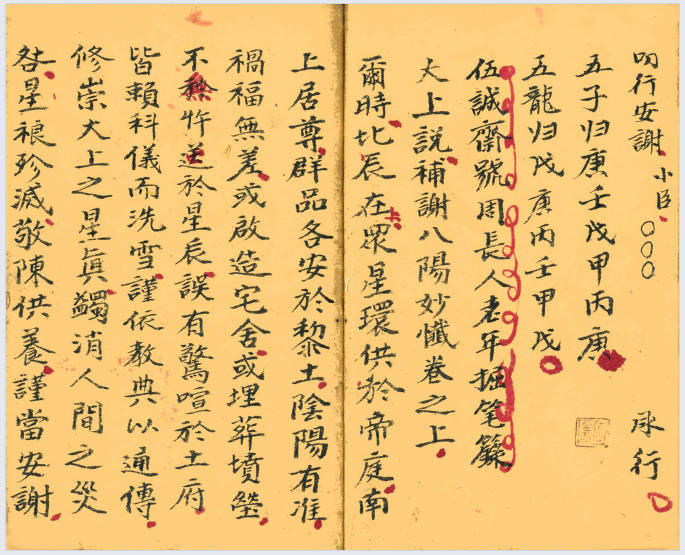 叨行安謝 小臣 〇〇〇 承行
五子归庚壬戊甲丙庚
五龍归戊庚丙壬甲戊
伍誠齋號周長人老年掘笔籙
太上説補謝八陽妙懺卷之上
爾時北辰在上眾星環供於帝庭南
上居尊群品各安於黎土陰陽有准
禍福無差或啟造宅舍或埋葬墳塋
不祭忤逆於星辰誤有驚喧於土府
皆賴科儀而洗雪謹依教典以通傳
修崇大上之星眞蠲消人間之災
咎星祲殄滅敬陳供養謹當安謝